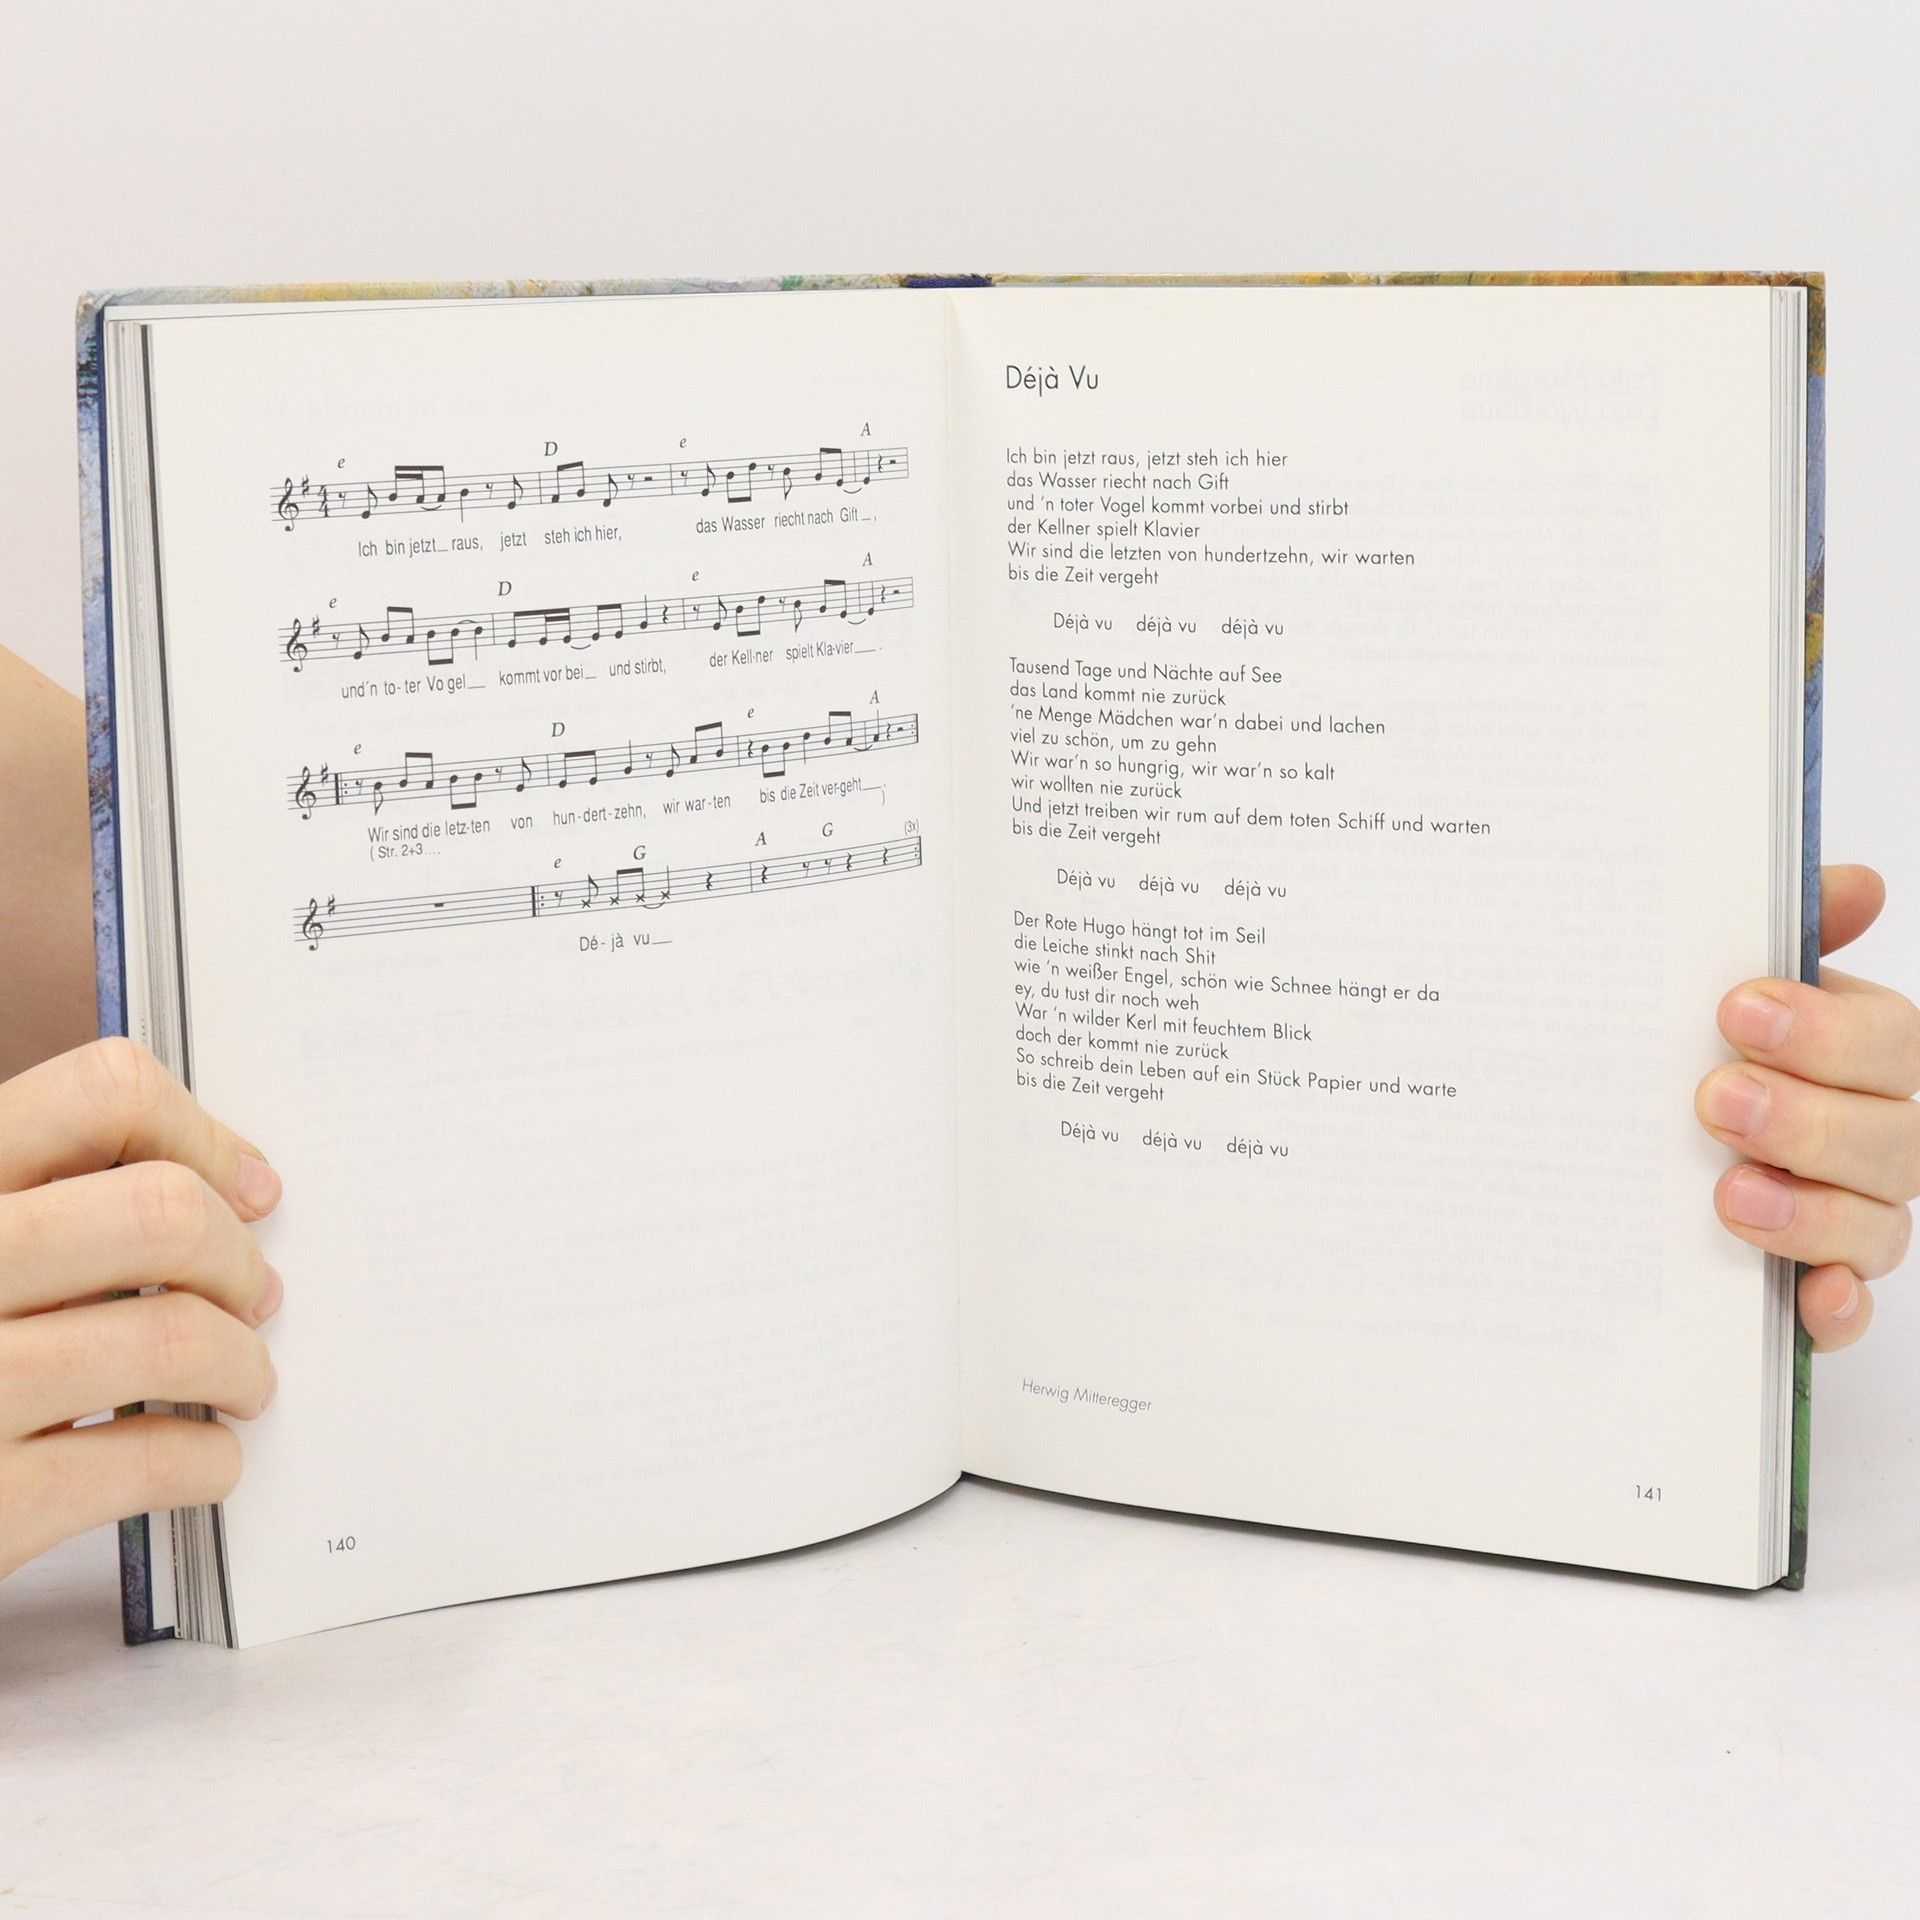 e D e A
Ich bin jetzt_ raus, jetzt steh ich hier, das Wasser riecht nach Gift_,
e D e A
und´n to-ter Vo gel_ kommt vor bei_ und stirbt, der Kell-ner spielt Kla-vier_.
e D e A
Wir sind die letz-ten von hun-dert-zehn, wir war-ten bis die Zeit ver-geht_;
( Str. 2+3.... )
e G A G (3x)
Dé- jà vu_
140
Déjà Vu
Ich bin jetzt raus, jetzt steh ich hier
das Wasser riecht nach Gift
und ‘n toter Vogel kommt vorbei und stirbt
der Kellner spielt Klavier
Wir sind die letzten von hundertzehn, wir warten
bis die Zeit vergeht
Déjà vu déjà vu déjà vu
Tausend Tage und Nächte auf See
das Land kommt nie zurück
‘ne Menge Mädchen war‘n dabei und lachen
viel zu schön, um zu gehn
Wir war‘n so hungrig, wir war‘n so kalt
wir wollten nie zurück
Und jetzt treiben wir rum auf dem toten Schiff und warten
bis die Zeit vergeht
Déjà vu déjà vu déjà vu
Der Rote Hugo hängt tot im Seil
die Leiche stinkt nach Shit
wie ‘n weißer Engel, schön wie Schnee hängt er da
ey, du tust dir noch weh
War ‘n wilder Kerl mit feuchtem Blick
doch der kommt nie zurück
So schreib dein Leben auf ein Stück Papier und warte
bis die Zeit vergeht
Déjà vu déjà vu déjà vu
Herwig Mitteregger
141